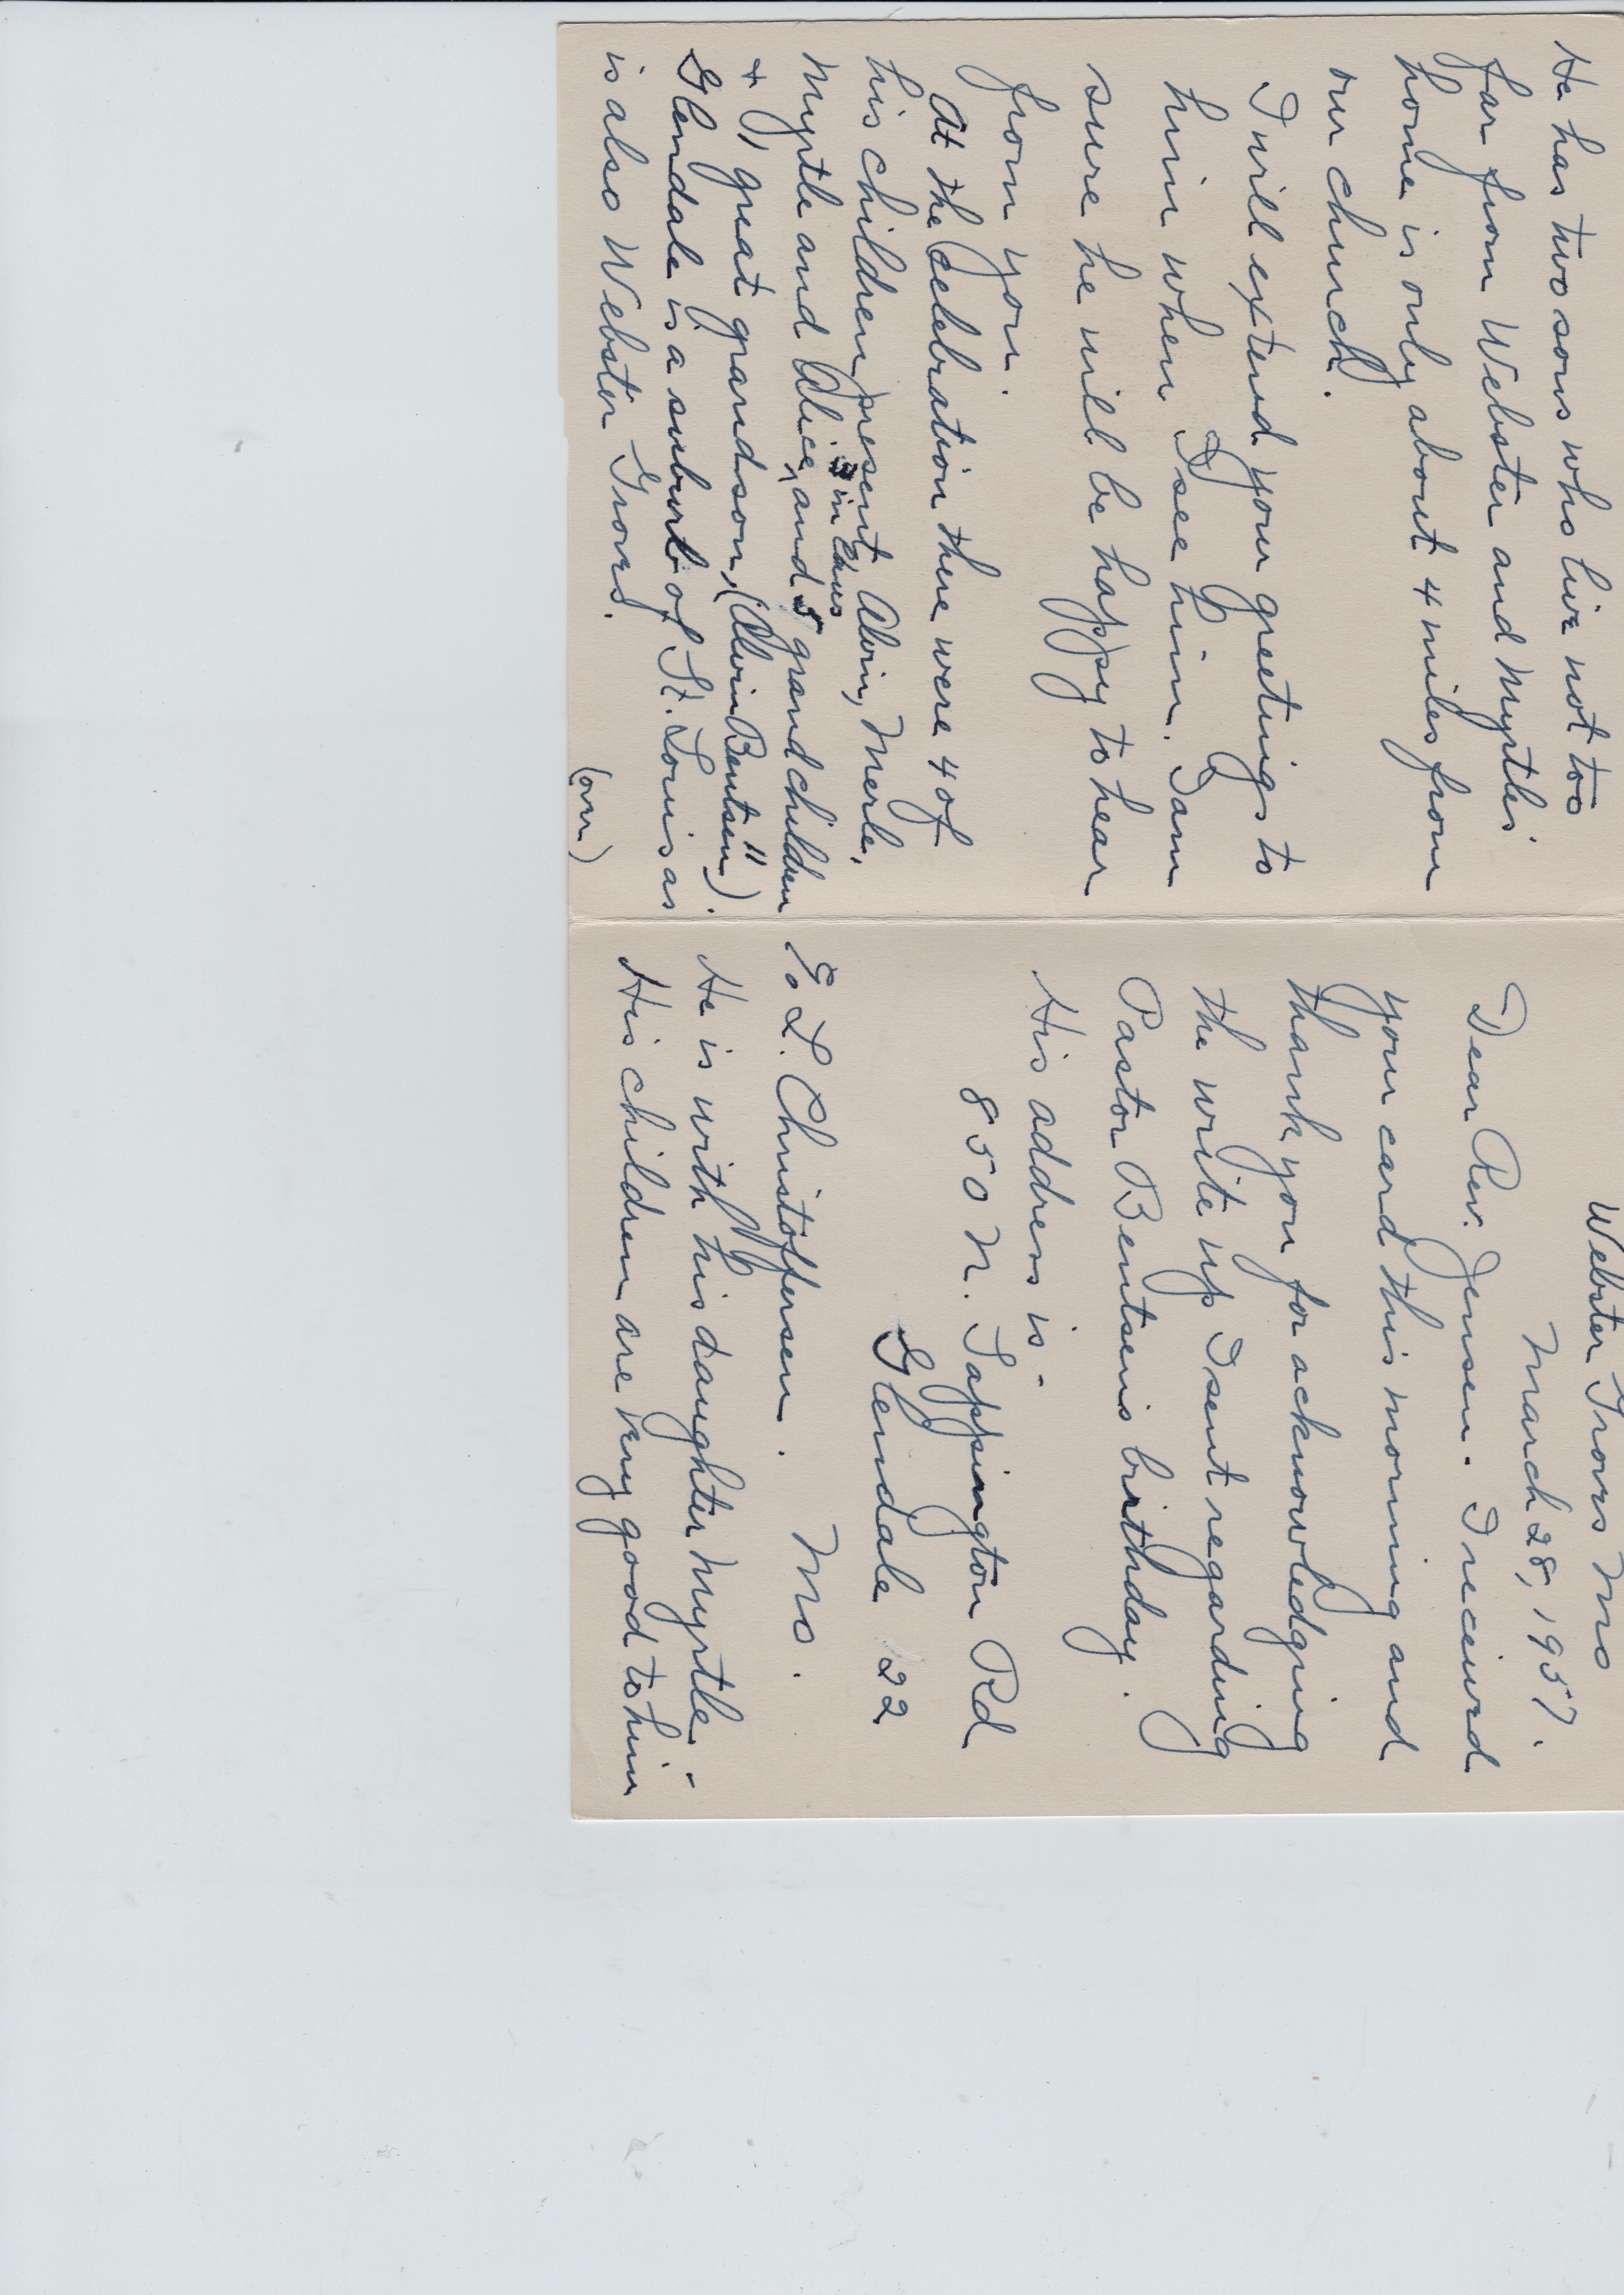 Webster Groves Mo
March 28, 1957.
Dear Rev. Jensen. I received
your card this morning and
thank you for acknowledging
the write up I sent regarding
Pastor Bentsens birthday.
His address is -
850 N. Sappington Rd
Glendale 22
% L. Christoffersen. Mo.
He is with his daughter Myrtle. -
His children are very good to him
He has two sons who live not too
far from Webster and Myrtles
home is only about 4 miles from
our church.
I will extend your greetings to
him when I see him. I am
sure he will be happy to hear
from you.
At the Celebration there were 4 of
his children present Alvin, Merle,
3 in laws
Myrtle and Alice, and 5 grandchildren
+ 1, great grandson, (Alvin Bentsen").
Glendale is a suburb of St. Louis as
is also Webster Groves.
(over)